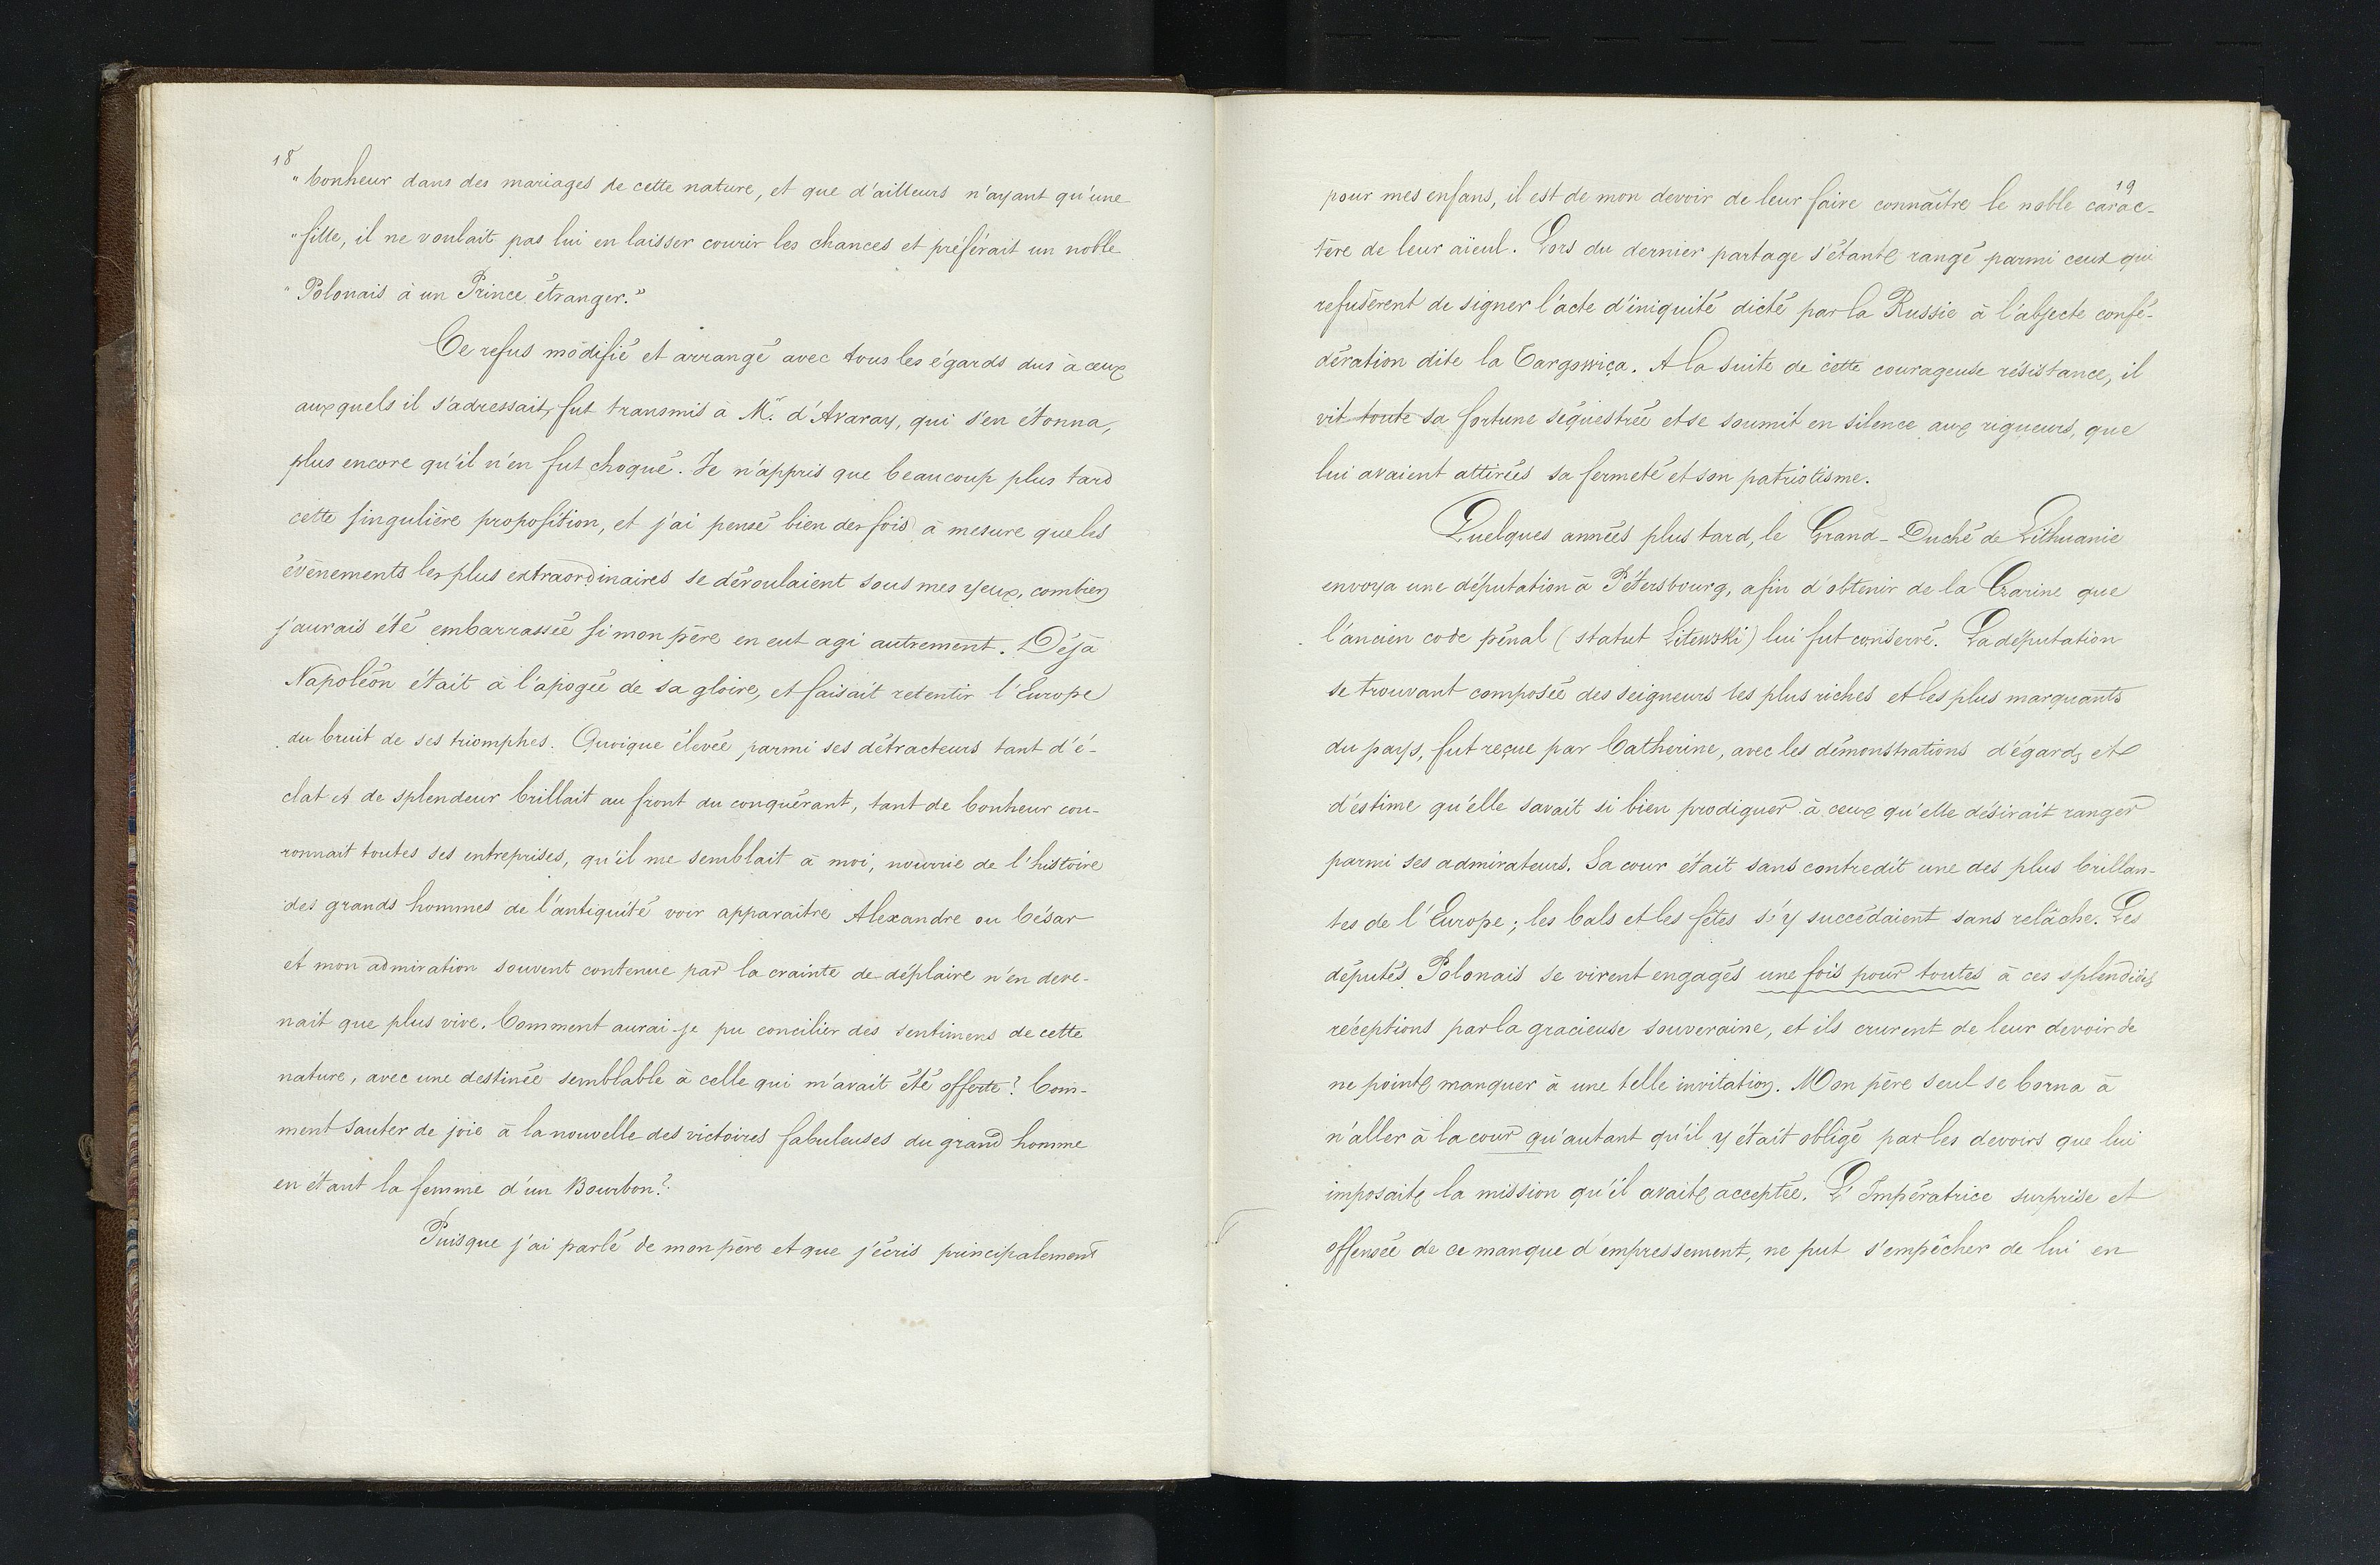 18
"bonheur dans des mariages de cette nature, et que d'ailleurs n'ayant qu'une
"fille, il ne voulait pas lui en laisser courir les chances et préférait un noble
"Polonais à un Prince étranger."
Ce refus modifié et arrangé avec tous les égards dus à ceux
auxquels il s'adressait, fut transmis à Mr. d'Avaray, qui s'en étonna,
plus encore qu'il n'en fut choqué. Je n'appris que beaucoup plus tard
cette singulière proposition, et j'ai pensé bien des fois, à mesure que les
évènements les plus extraordinaires se déroulaient sous mes yeux, combien
j'aurais été embarrassée si mon père en eut agi autrement. Déjà
Napoléon était à l'apogée de sa gloire, et faisait retentir l'Europe
du bruit de ses triomphes. Quoique élevée parmi ses détracteurs tant d'é-
clat et de splendeur brillait au front du conquérant, tant de bonheur cou-
ronnait toutes ses entreprises, qu'il me semblait à moi, nourrie de l'histoire
des grands hommes de l'antiquité voir apparaître Alexandre ou César
et mon admiration souvent contenue par la crainte de déplaire n'en deve-
nait que plus vive. Comment aurai-je pu concilier des sentimens de cette
nature, avec une destinée semblable à celle qui m'avait été offerte? Com-
ment sauter de joie à la nouvelle des victoires fabuleuses du grand homme
en étant la femme d'un Bourbon?
Puisque j'ai parlé de mon père et que j'écris principalement
19
pour mes enfans, il est de mon devoir de leur faire connaître le noble carac-
tère de leur aïeul. Lors du dernier partage s'étant rangé parmi ceux qui
refusèrent de signer l'acte d'iniquité dicté par la Russie à l'abjecte confé-
dération dite la Targowiça. A la suite de cette courageuse résistance, il
vit toute sa fortune séquestrée et se soumit en silence aux rigueurs, que
lui avaient attirées sa fermeté et son patriotisme.
Quelques années plus tard, le Grand-Duché de Lithuanie
envoya une députation à Pétersbourg, afin d'obtenir de la Czarine que
l'ancien code pénal (statut Litewski) lui fut conservé. La députation
se trouvant composée des seigneurs les plus riches et les plus marquants
du pays, fut reçue par Catherine, avec les démonstrations d'égards et
d'éstime qu'elle savait si bien prodiguer à ceux qu'elle désirait ranger
parmi ses admirateurs. Sa cour était sans contredit une des plus brillan-
tes de l'Europe; les bals et les fêtes s'y succédaient sans relâche. Les
députés Polonais se virent engagés une fois pour toutes à ces splendides
réceptions par la gracieuse souveraine, et ils crurent de leur devoir de
ne point manquer à une telle invitation. Mon père seul se borna à
n'aller à la cour qu'autant qu'il y était obligé par les devoirs que lui
imposait la mission qu'il avait acceptée. L'Impératrice surprise et
offensée de ce manque d'empressement, ne put s'empêcher de lui en